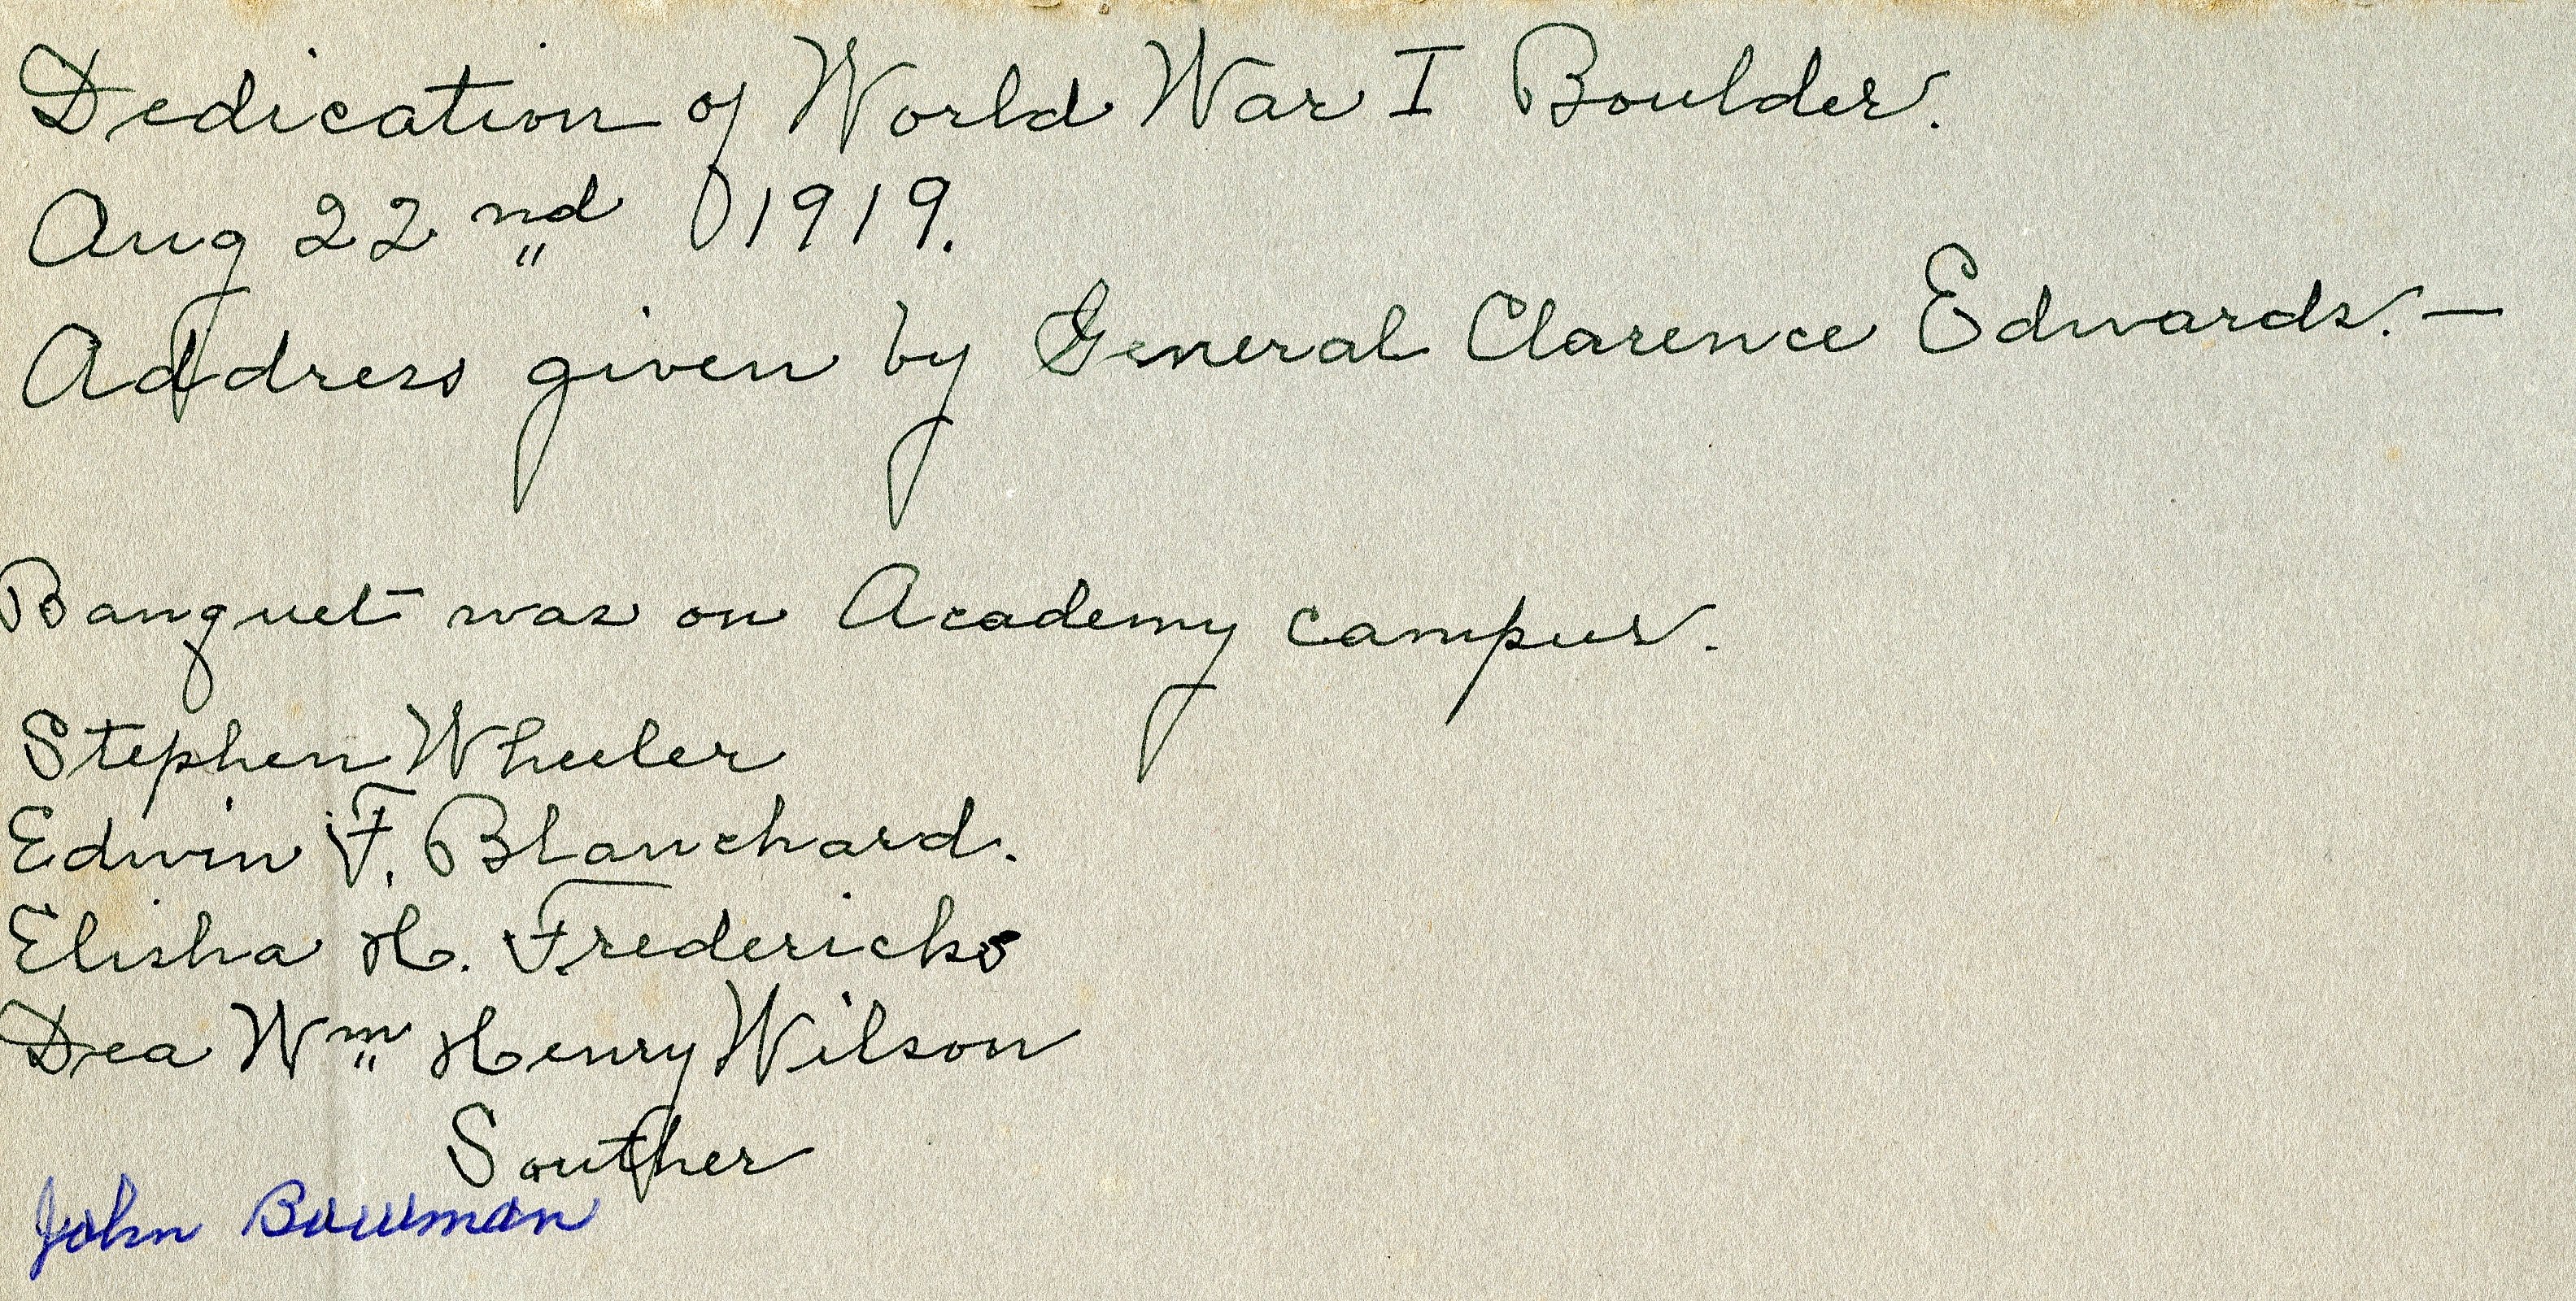 Dedication of World War I Boulder.
Aug 22nd 1919.
Address given by General Clarence Edwards. —
Banquet was on Academy campus.
Stephen Wheeler
Edwin F. Blanchard.
Elisha H. Fredericks
Dea Wm Henry Wilson
Souther
John Bowman